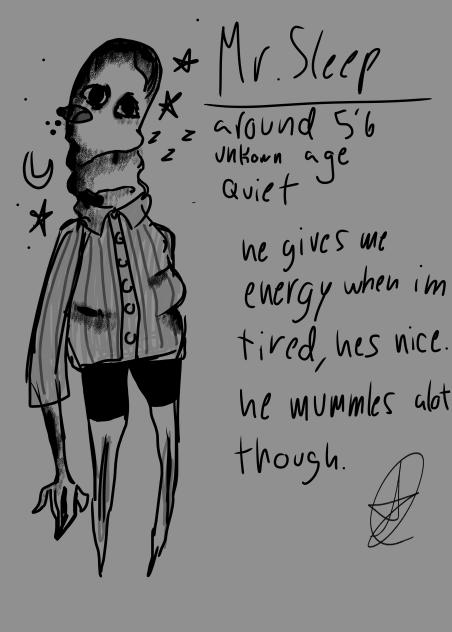 Mr. Sleep
around 5'6
unkown age
quiet
he gives me
energy when im
tired, hes nice.
he mummles alot
though.
z z
z